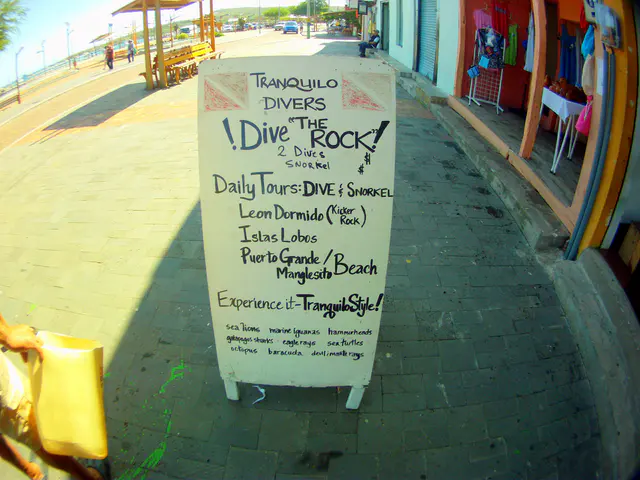 TRANQUILO
DIVERS
!Dive "THE ROCK"!
2 Dives
SNORKEL
$
$
Daily Tours: DIVE & SNORKEL
Leon Dormido (Kicker Rock)
Islas Lobos
Puerto Grande/
Manglesito Beach
Experience it-Tranquilo Style!
sea lions marine iguanas hammerheads
galapagos sharks eagle rays sea turtles
octopus baracuda devil/manta rays